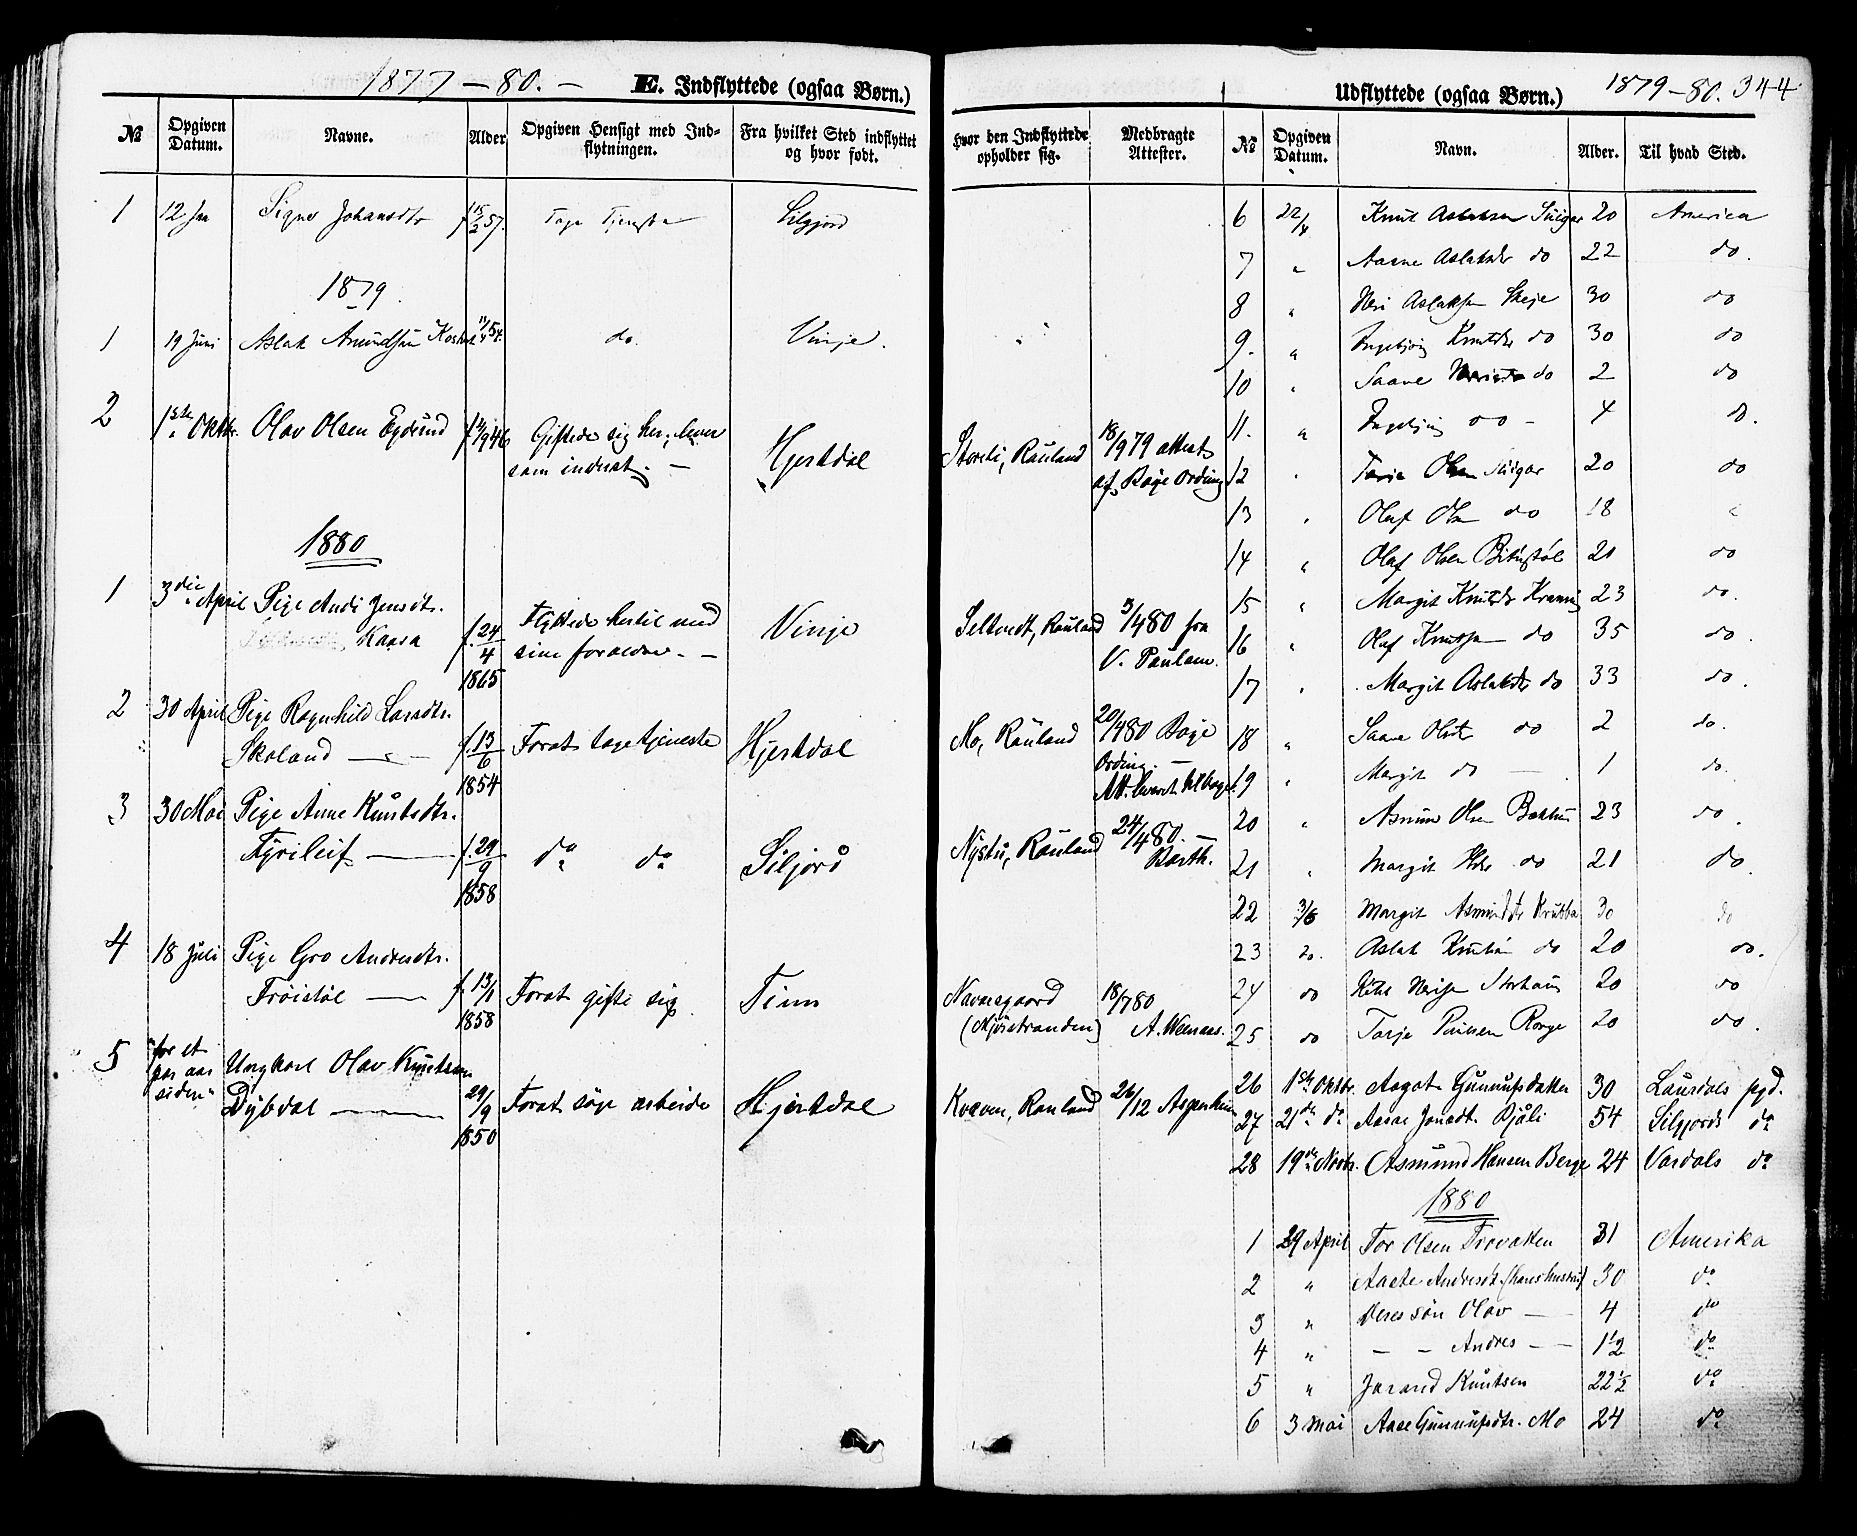 1877-80. - E. Indflyttede (ogsaa Børn.)
№ Opgiven Datum. Navne. Alder Opgiven Hensigt med Indflytningen. Fra hvilket Sted indflyttet og hvor født. Hvor den Indflyttede opholder sig. Medbragte Attester.
1 12 Jan Signe Johansdtr f 15/2 57. Tage Tjeneste Silgjord
1879.
1 19 Juni Aslak Amundsen 11/4 54. do. Vinje.
2 1ste Oktbr. Olav Olsen Egdsund f 12/9 46 Giftede sig her, lever som inderst. - Hjertdal Storeli, Rauland 18/9 79 attest af Boye Ording
1880
1 3die April Pige Andi Jensdtr. Kaasa f. 24/4 1865 Flyttede hertil med sine forældre. - Vinje Seltveit, Rauland 3/4 80 fra V. Paulsen.
2 30 April Pige Ragnhild Larsdtr. Skoland f. 13/6 1854 For at tage tjeneste Hjertdal Mo, Rauland 20/4 80 Boye Ording. -
3 30 Mai Pige Anne Knutsdtr. Fyrileif f. 29/9 1858 do do Siljord Nystu, Rauland 24/4 80. - Barth.
4 18 Juli Pige Gro Andresdtr. Frøistøl f. 13/1 1858 For at gifte sig. Tinn Navaregaard (Mjøsstranden) 18/7 80 A. Wemaas.
5 "for et par aar siden" Ungkarl Olav Knutsen Dybdal 29/9 1850 For at søge arbeide Hjertdal Kvæven, Rauland 26/12 Asperheim
Udflyttede (ogsaa Børn.) 1879-80. 344
№ Opgiven Datum. Navn. Alder. Til hvad Sted.
6 22/4 Knut Aslaksen 20 America
7 " Aasne Aslaksdr do 22 do.
8 " Neri Aslaksen Skeje 30 do
9. " Ingebjørg Knutsdr do 30 do
10 " Saave do 2 do
11. " Ingebjørg do - 4 do.
12 " Tarje Olsen 20 do
13 " Olaf Olsen do 18 "
14 " Olaf Olsen Bitustøl 20 do
15 " Margit Knutsdr 23 do.
16 " Olaf Knutsen do 35 do.
17 " Margit Aslaksdr do 33 do.
18 " Saave Olsdr do 2 do.
19 " Margit do - 1 do.
20 " Asmund Olsen 23 do.
21 " Margit do 21 do.
22 3/6 Margit Asmundsdr 30 do
23 do. Aslak Knutsen do 20 do.
24 do Nerisen Storhaug 20 do
25 do Tarje 20 do.
26 1ste Oktbr. Aagot Gunnufsdatter 30 Laurdals pgd.
27 21de do Aasne Jonsdtr. Bjåli 54 Silgjords do
28 19de Novbr. Asmund Hansen Berge 24 Vardals do
1880
1 29 April Tor Olsen Trovatten 31 Amerika
2 " Aaste Andresdtr. (hans hustru) 30 do
3 " Deres søn Olav - 4 do
4 " - - Andres - - 1½ do
5 " Jorand Knutsen 22½ do
6 3 Mai Aase Gunnufsdtr. Mo 24 do